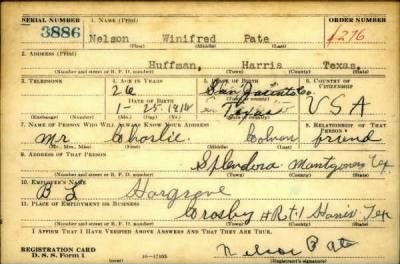 SERIAL NUMBER 1. NAME (Print) ORDER NUMBER
3886 Nelson Winifred Pate 1276
(First) (Middle) (Last)
2. ADDRESS (Print)
Huffman, Harris Texas,
(Number and street or R. F. D. number) (Town) (County) (State)
3. TELEPHONE 4. AGE IN YEARS 5. PLACE OF BIRTH 6. COUNTRY OF CITIZENSHIP
26 San Jacinto Co.
DATE OF BIRTH (Town or county)
1- 25- 1914 Texas USA
(Exchange) (Number) (Mo.) (Day) (Yr.) (State or country)
7. NAME OF PERSON WHO WILL ALWAYS KNOW YOUR ADDRESS 8. RELATIONSHIP OF THAT PERSON
Mr Charlie friend
(Mr., Mrs., Miss) (First) (Middle) (Last)
9. ADDRESS OF THAT PERSON
Splendora Montgomery Tex
(Number and street or R. F. D. number) (Town) (County) (State)
10. EMPLOYER'S NAME
B L Hargrove
11. PLACE OF EMPLOYMENT OR BUSINESS
Crosby Rt 1 Harris Tex
(Number and street or R. F. D. number) (Town) (County) (State)
I AFFIRM THAT I HAVE VERIFIED ABOVE ANSWERS AND THAT THEY ARE TRUE.
REGISTRATION CARD
D. S. S. Form 1 16—17105 Nelson Pate
(Registrant's signature)